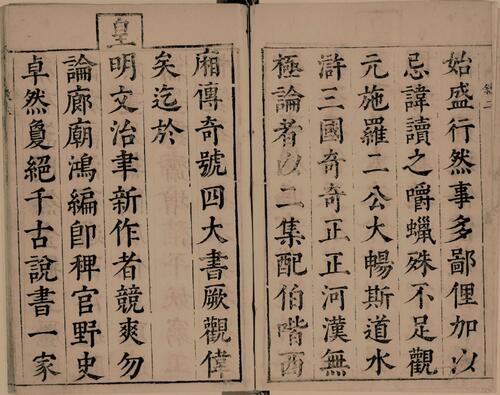 始盛行然事多鄙俚加以
忌諱讀之嚼蠟殊不足觀
元施羅二公大暢斯道水
滸三國奇奇正正河漢無
極論者以二集配伯喈西
廂傳奇號四大書厥觀偉
矣迄於
皇明文治聿新作者競爽勿
論廊廟鴻編卽稗官野史
卓然夐絕千古說書一家